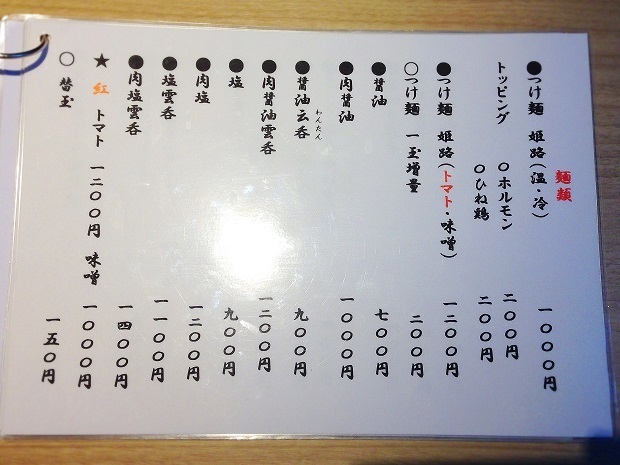 麺類
●つけ麺 姫路(温・冷) 一〇〇〇円
トッピング ○ホルモン 二〇〇円
○ひね鶏 二〇〇円
●つけ麺 姫路(トマト・味噌) 一二〇〇円
○つけ麺 一玉増量 二〇〇円
●醤油 七〇〇円
●肉醤油 一〇〇〇円
●醤油云呑 わんたん 九〇〇円
●肉醤油雲呑 一二〇〇円
●塩 九〇〇円
●肉塩 一二〇〇円
●塩雲呑 一一〇〇円
●肉塩雲呑 一四〇〇円
★ 紅 トマト 一二〇〇円 味噌 一〇〇〇円
○ 替玉 一五〇円